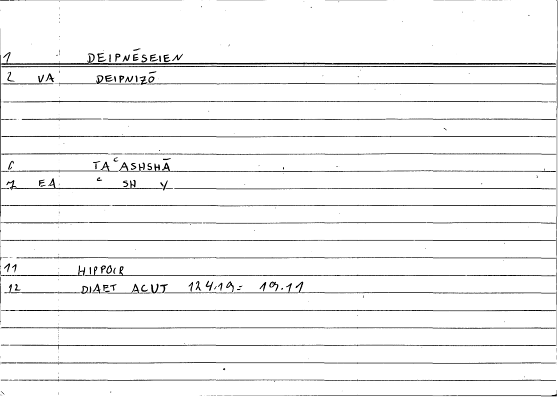 1 DEIPNĒSEIEN
2 VA DEIPNIZŌ
6 TAᶜASHSHĀ
7 EA ᶜ SH Y
11 HIPPOIR
12 DIAET ACUT 124.19= 19.11